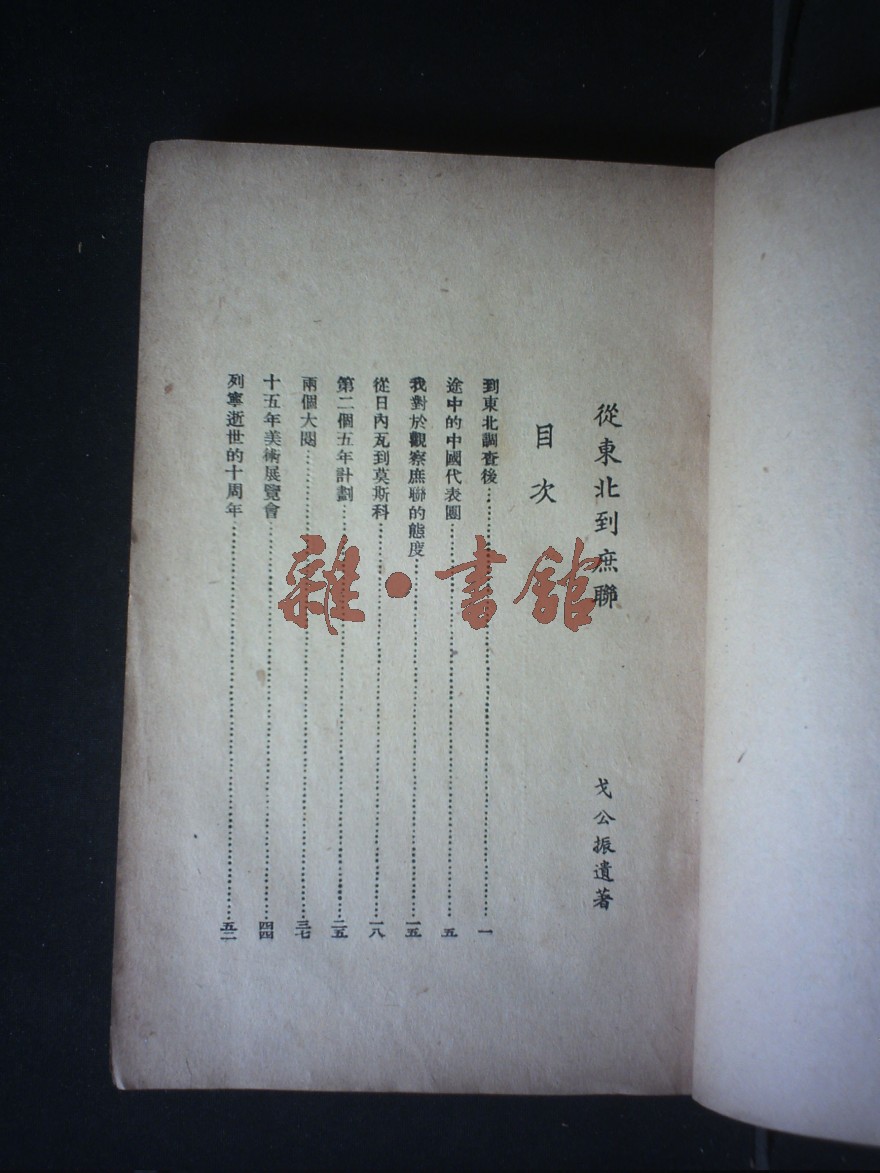 從東北到庶聯
戈公振遺著
目次
到東北調查後……一
途中的中國代表團……五
我對於觀察庶聯的態度……一五
從日內瓦到莫斯科……一八
第二個五年計劃……二五
兩個大閱……三七
十五年美術展覽會……四四
列寧逝世的十周年……五二
雜·書館